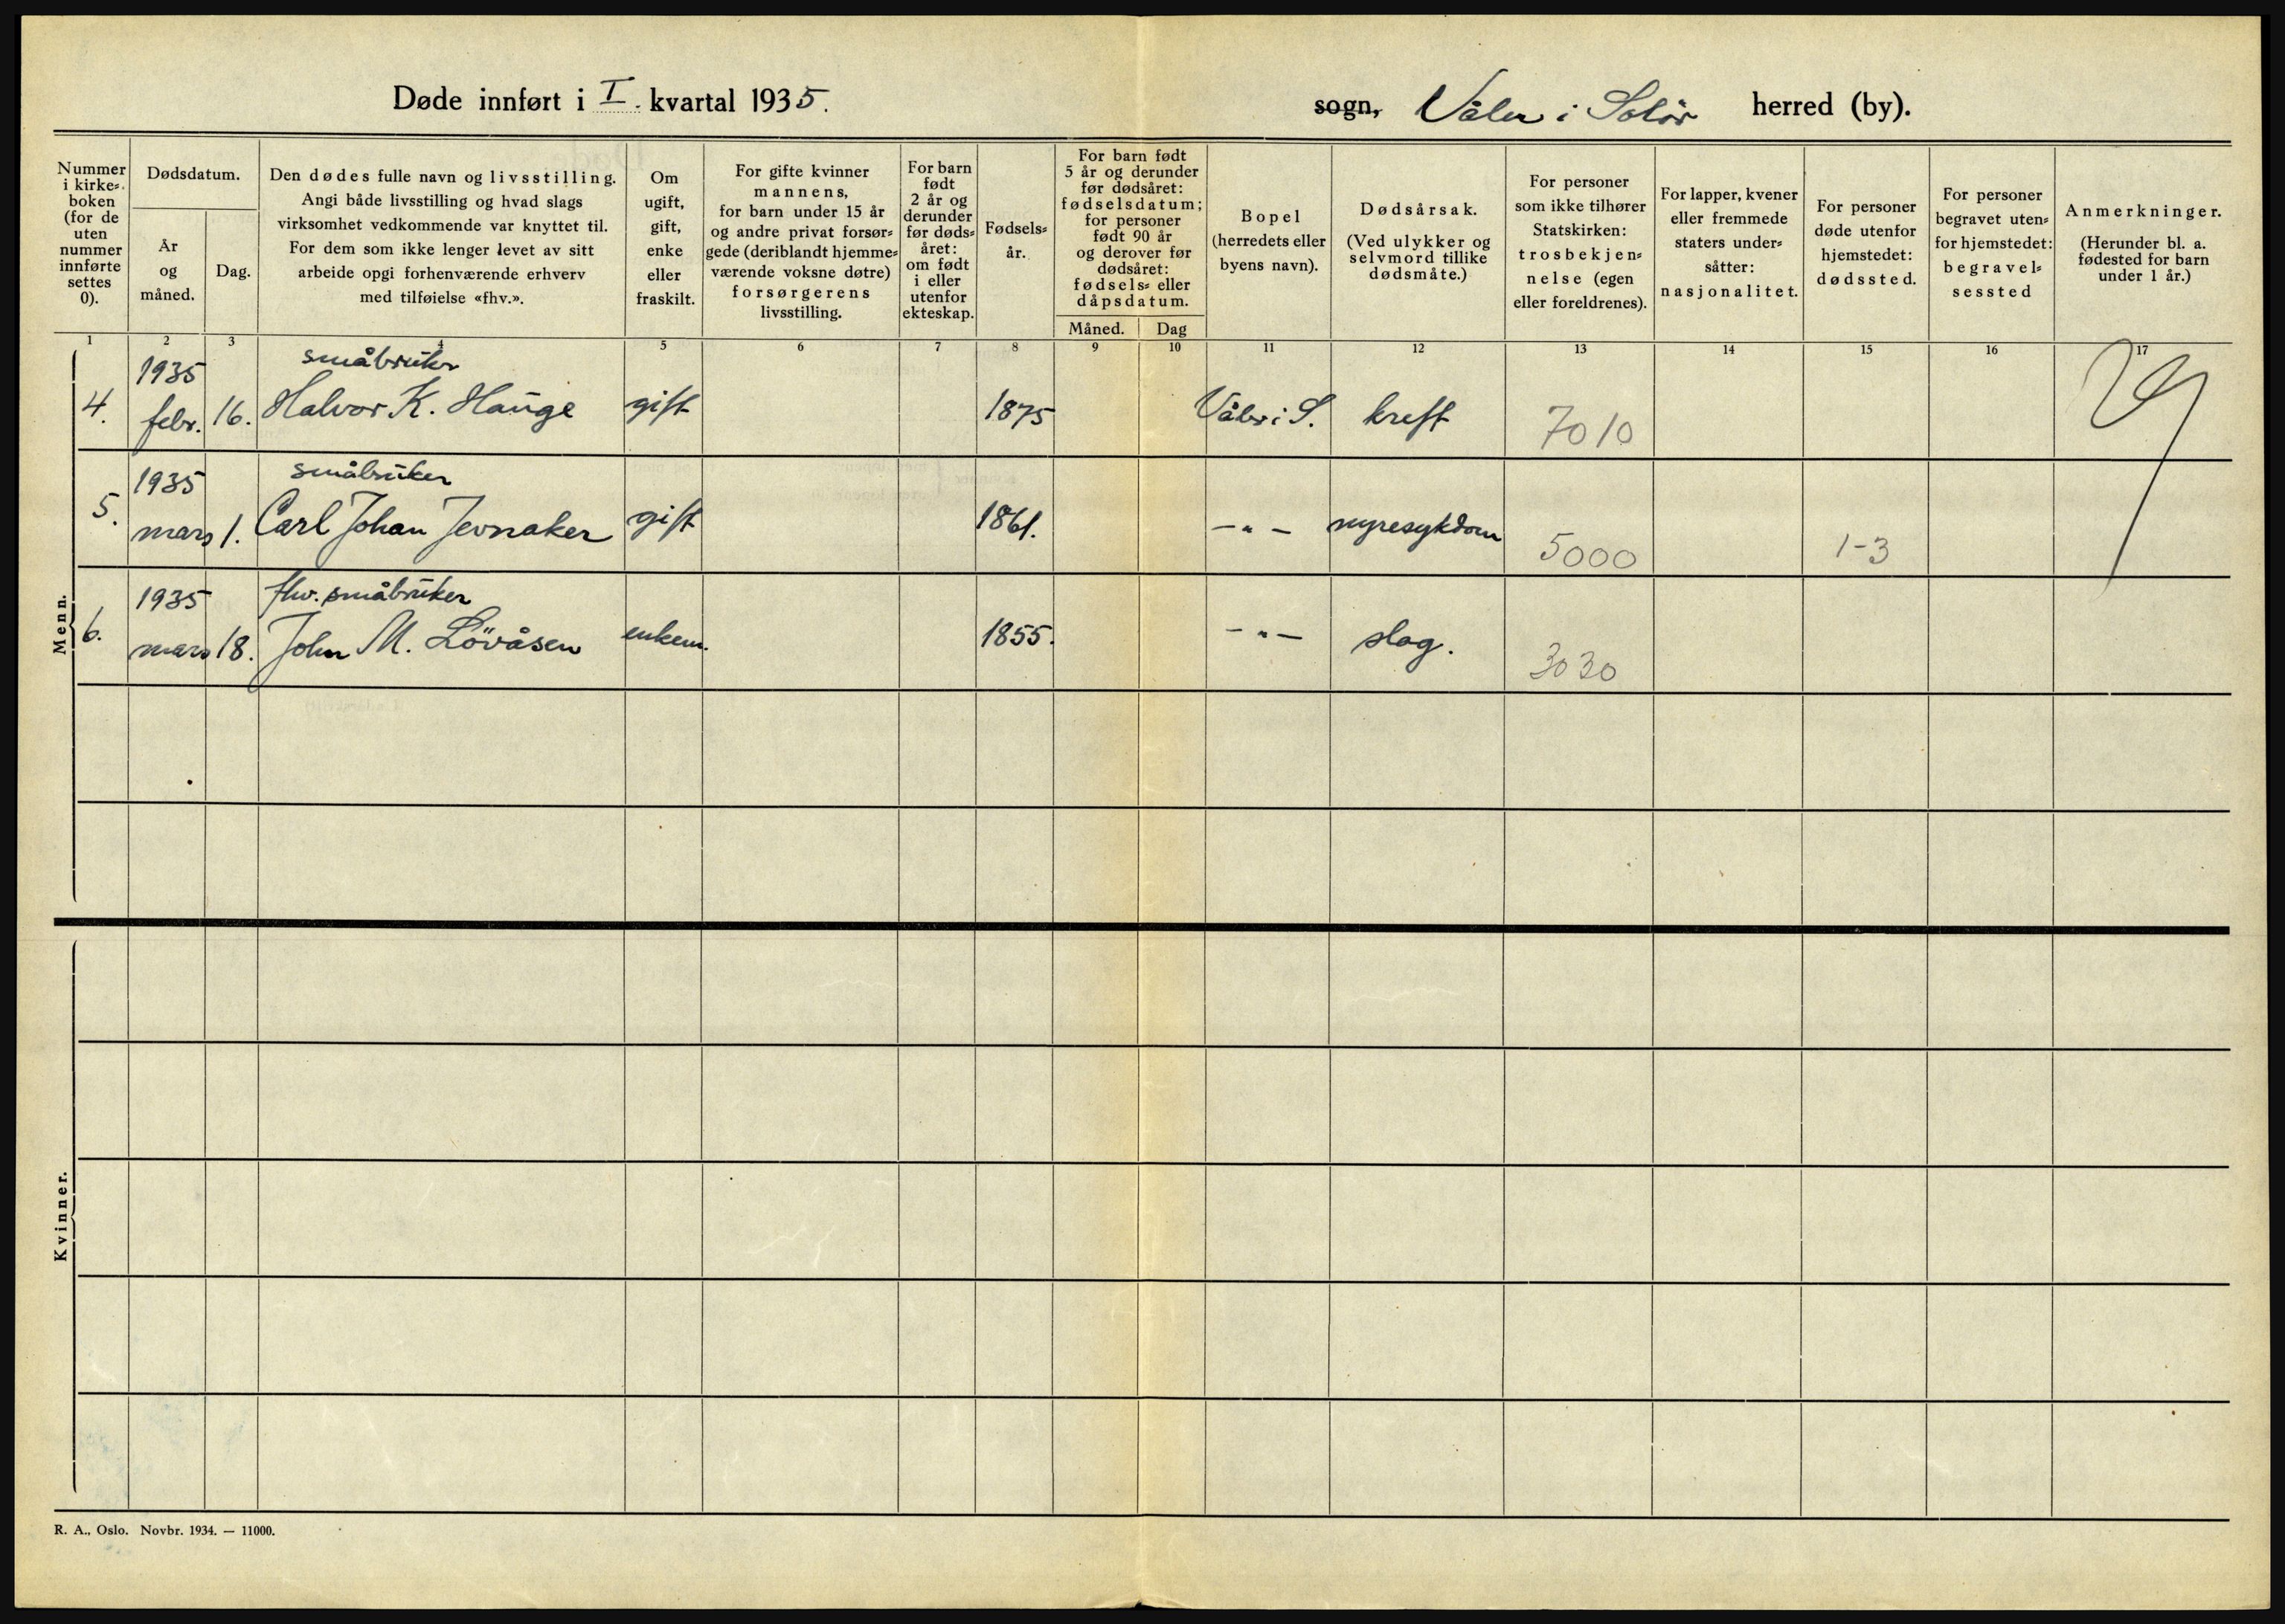 Døde innført i I. kvartal 1935.
sogn, Våler i Solør herred (by).
Nummer i kirke= boken (for de uten nummer innførte settes 0).
Dødsdatum.
År og måned.
Dag.
Den dødes fulle navn og livsstilling.
Angi både livsstilling og hvad slags
virksomhet vedkommende var knyttet til.
For dem som ikke lenger levet av sitt
arbeide opgi forhenværende erhverv
med tilføielse «fhv.».
Om ugift, gift, enke eller fraskilt.
For gifte kvinner
mannens,
for barn under 15 år
og andre privat forsør=
gede (deriblandt hjemme=
værende voksne døtre)
forsørgerens
livsstilling.
For barn født 2 år og derunder før døds= året: om født i eller utenfor ekteskap.
Fødsels= år.
For barn født
5 år og derunder
før dødsåret:
fødselsdatum;
for personer
født 90 år
og derover før
dødsåret:
fødsels= eller
dåpsdatum.
Måned.
Dag
Bopel
(herredets eller
byens navn).
Dødsårsak.
(Ved ulykker og
selvmord tillike
dødsmåte.)
For personer
som ikke tilhører
Statskirken:
trosbekjen=
nelse (egen
eller foreldrenes).
For lapper, kvener
eller fremmede
staters under=
såtter:
nasjonalitet.
For personer
døde utenfor
hjemstedet:
dødssted.
For personer
begravet uten=
for hjemstedet:
begravel=
sessted
Anmerkninger.
(Herunder bl. a.
fødested for barn
under 1 år.)
1 2 3 4 5 6 7 8 9 10 11 12 13 14 15 16 17
Menn.
1935 småbruker
4. febr. 16. Halvor K. Hauge gift 1875 Våler i S. kreft 7010
1935 småbruker
5. mars 1. Carl Johan Jevnaker gift 1861. -"- nyresykdom 5000 1-3
1935 fhv. småbruker
6. mars 18. John M. Lövåsen enkem. 1855. -"- slag. 3030
Kvinner.
R. A., Oslo. Novbr. 1934. — 11000.